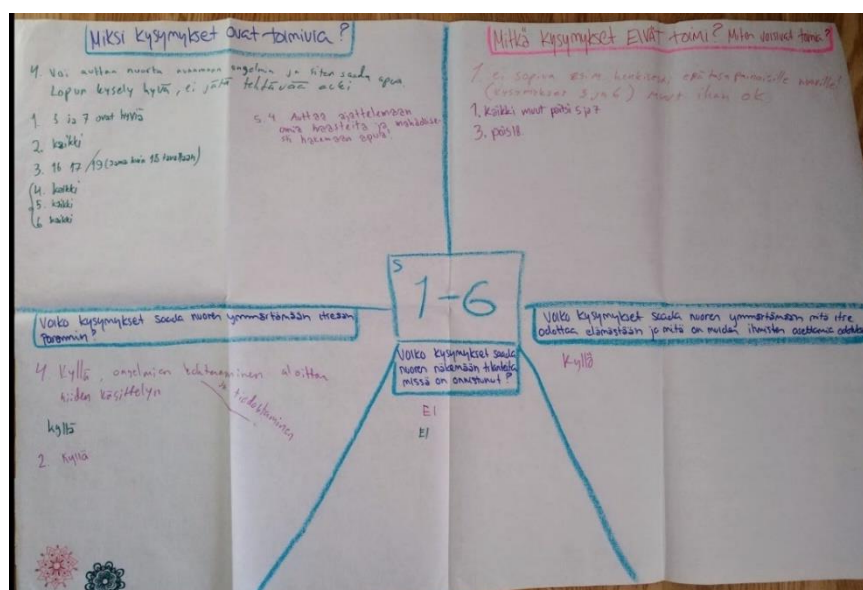 Miksi kysymykset ovat toimivia?
4. Voi auttaa nuorta ongelmia ja siten saada apua.
Lopun kysely hyvä, ei jätä tehtävää
1. 3 ja 7 ovat hyviä
2. kaikki
3. 16 17 / 19 (sama kuin 18 tavallaan)
4. kaikki
5. kaikki
6 kaikki
5. 4 Auttaa ajattelemaan
omia haasteita ja
hakemaan apua.
Mitkä kysymykset EIVÄT toimi? Miten voisivat toimia?
1. ei sopiva
(kysymykset 3 ja 6) muut ihan ok
1. Kaikki muut paitsi 5 ja 7
3. pois 18
S
1-6
Voiko kysymykset saada nuoren ymmärtämään itseään
paremmin?
4 Kyllä, ongelmien kohtaaminen aloittaa
niiden käsittelyn
tiedostaminen
Kyllä
2. Kyllä
Voiko kysymykset saada
nuoren näkemään tilanteita
missä on onnistunut?
EI
EI
Voiko kysymykset saada nuoren ymmärtämään mitä itse
odottaa elämästään ja mitä on muiden ihmisten asettamia
Kyllä